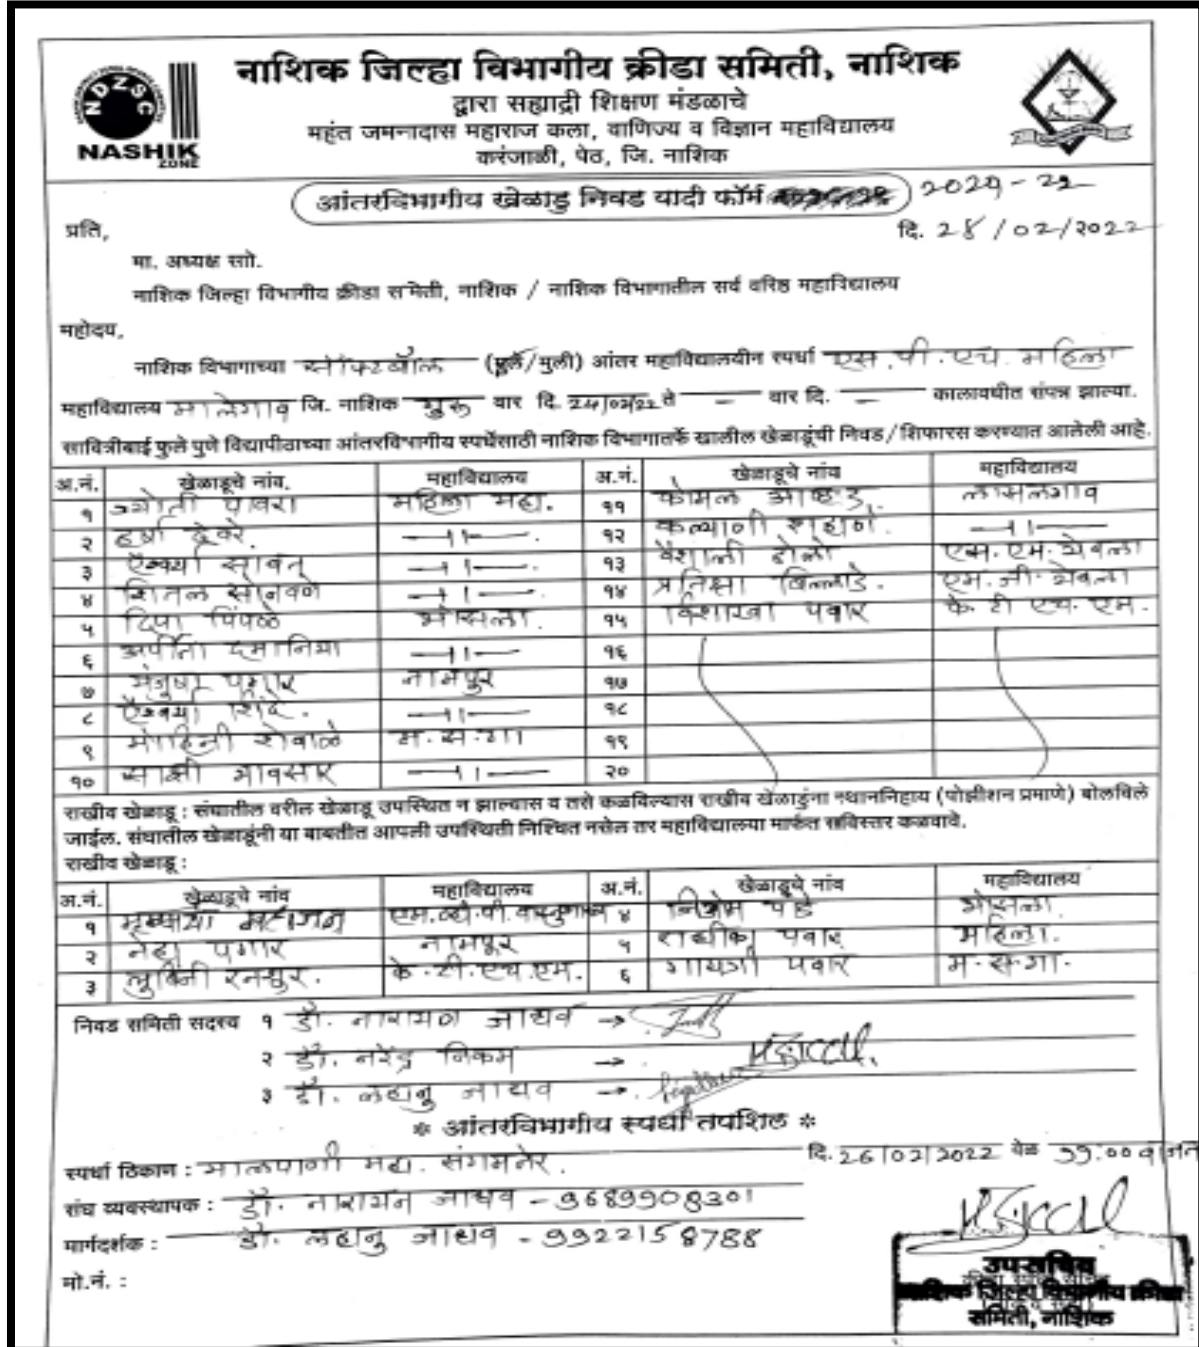 नाशिक जिल्हा विभागीय क्रीडा समिती, नाशिक
द्वारा सह्याद्री शिक्षण मंडळाचे
महंत जमनादास महाराज कला, वाणिज्य व विज्ञान महाविद्यालय
करंजाळी, पेठ, जि. नाशिक
NDZSC
NASHIK
ZONE
आंतरविभागीय खेळाडु निवड यादी फॉर्म २०२१-२२
प्रति,
दि. 24/02/2022
मा. अध्यक्ष सो.
नाशिक जिल्हा विभागीय क्रीडा समिती, नाशिक / नाशिक विभागातील सर्व वरिष्ठ महाविद्यालय
महोदय,
नाशिक विभागाच्या सॉफ्टबॉल (मुले/मुली) आंतर महाविद्यालयीन स्पर्धा एस. पी. एच. महिला
महाविद्यालय मालेगाव जि. नाशिक गुरु वार दि. 24/02/22 ते - वार दि. - कालावधीत संपन्न झाल्या.
सावित्रीबाई फुले पुणे विद्यापीठाच्या आंतरविभागीय स्पर्धेसाठी नाशिक विभागातर्फे खालील खेळाडूंची निवड/शिफारस करण्यात आलेली आहे.
अ.नं. खेळाडूचे नांव. महाविद्यालय अ.नं. खेळाडूचे नांव महाविद्यालय
१ ज्योती पावरा महिला महा. ११ कोमल आव्हाड. लासलगाव
२ हर्षा देवरे. -॥- १२ कल्याणी शहाणे. -॥-
३ ऐश्वर्या सावंत -॥- १३ वैशाली ढोले एस. एम. येवला
४ शितल सोनवणे -॥- १४ प्रतिक्षा खिल्लारे. एम. जी. येवला
५ दिपा पिंपळे भोसला. १५ विशाखा पवार के. टी. एच. एम.
६ अर्पिता दमानिया -॥- १६
७ मंजुषा पगार नामपूर १७
८ ऐश्वर्या शिंदे. -॥- १८
९ मोहिनी शेवाळे म. स. गा १९
१० साक्षी भावसार -॥- २०
राखीव खेळाडू : संघातील वरील खेळाडू उपस्थित न झाल्यास व तसे कळविल्यास राखीव खेळाडुंना स्थाननिहाय (पोझीशन प्रमाणे) बोलविले
जाईल. संघातील खेळाडूंनी या बाबतीत आपली उपस्थिती निश्चित नसेल तर महाविद्यालया मार्फत सविस्तर कळवावे.
राखीव खेळाडू :
अ.नं. खेळाडूचे नांव महाविद्यालय अ.नं. खेळाडूचे नांव महाविद्यालय
१ महाजन ४ भोसला
२ नेहा पगार नामपूर ५ पवार महिला.
३ के. टी. एच. एम. ६ गायत्री पवार म. स. गा.
निवड समिती सदस्य १ डॉ. नारायण जाधव →
२ डॉ. नरेंद्र निकम →
३ डॉ. लहानु जाधव →
* आंतरविभागीय स्पर्धा तपशिल *
स्पर्धा ठिकाण : मालपाणी महा. संगमनेर. दि. 26/02/2022 वेळ ११:०० वाजता
संघ व्यवस्थापक : डॉ. नारायन जाधव - 9689908301
मार्गदर्शक : डॉ. लहानु जाधव - 9922158788
मो.नं. :
उपसचिव
नाशिक जिल्हा विभागीय क्रीडा
समिती, नाशिक